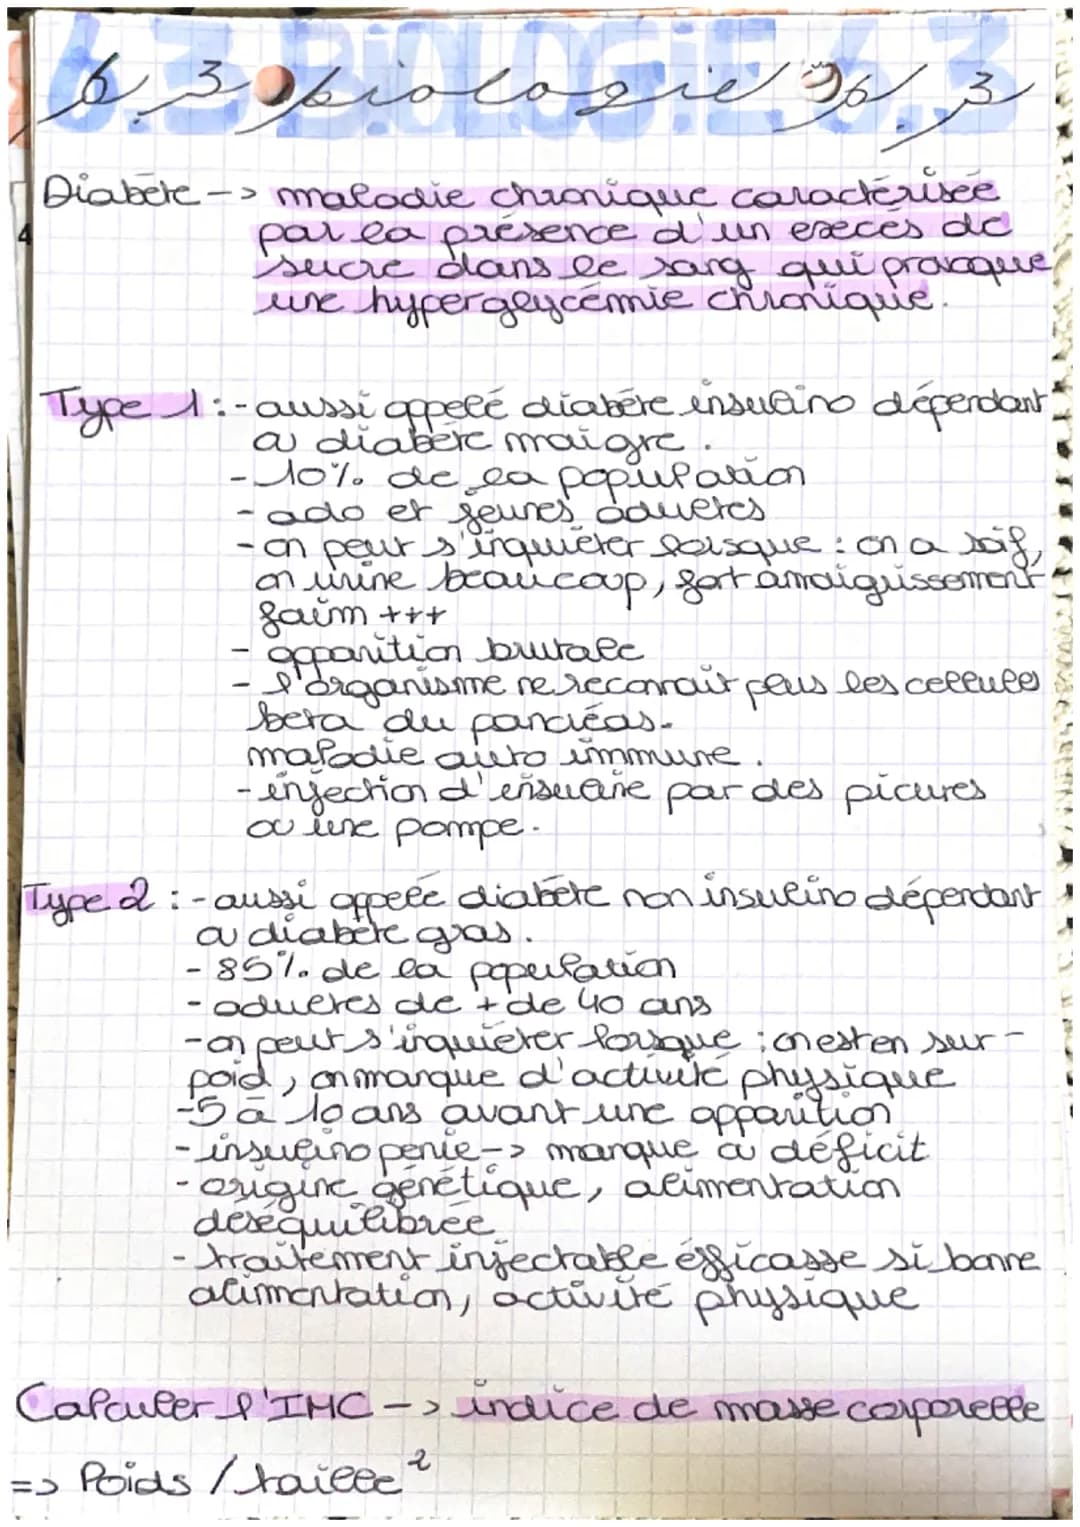 6.3 BiOLOGiE 6.3
6.3 biologie 6.3
Diabète -> maladie chronique caractérisée
4
par la présence d'un excès de
sucre dans le sang qui provoque
une hyperglycémie chronique.
Type 1 : - aussi appelé diabète insulino dépendant
ou diabète maigre.
- 10% de la population
- ado et jeunes adultes
- on peut s'inquiéter lorsque : on a soif,
on urine beaucoup, fort amaigrissement
faim +++
- apparition brutale
- l'organisme ne reconnait plus les cellules
beta du pancréas.
maladie auto immune.
- injection d'insuline par des picures
ou une pompe.
Type 2 : - aussi appelé diabète non insulino dépendant
ou diabète gras.
- 85% de la population
- adultes de + de 40 ans
- on peut s'inquiéter lorsque ; on est en sur -
poid, on manque d'activité physique
- 5 à 10 ans avant une apparition
- insulino penie -> manque ou déficit
- origine génétique, alimentation
déséquilibrée
- traitement injectable éfficasse si bonne
alimentation, activité physique
Calculer l'IMC -> indice de masse corporelle
=> Poids / taille²